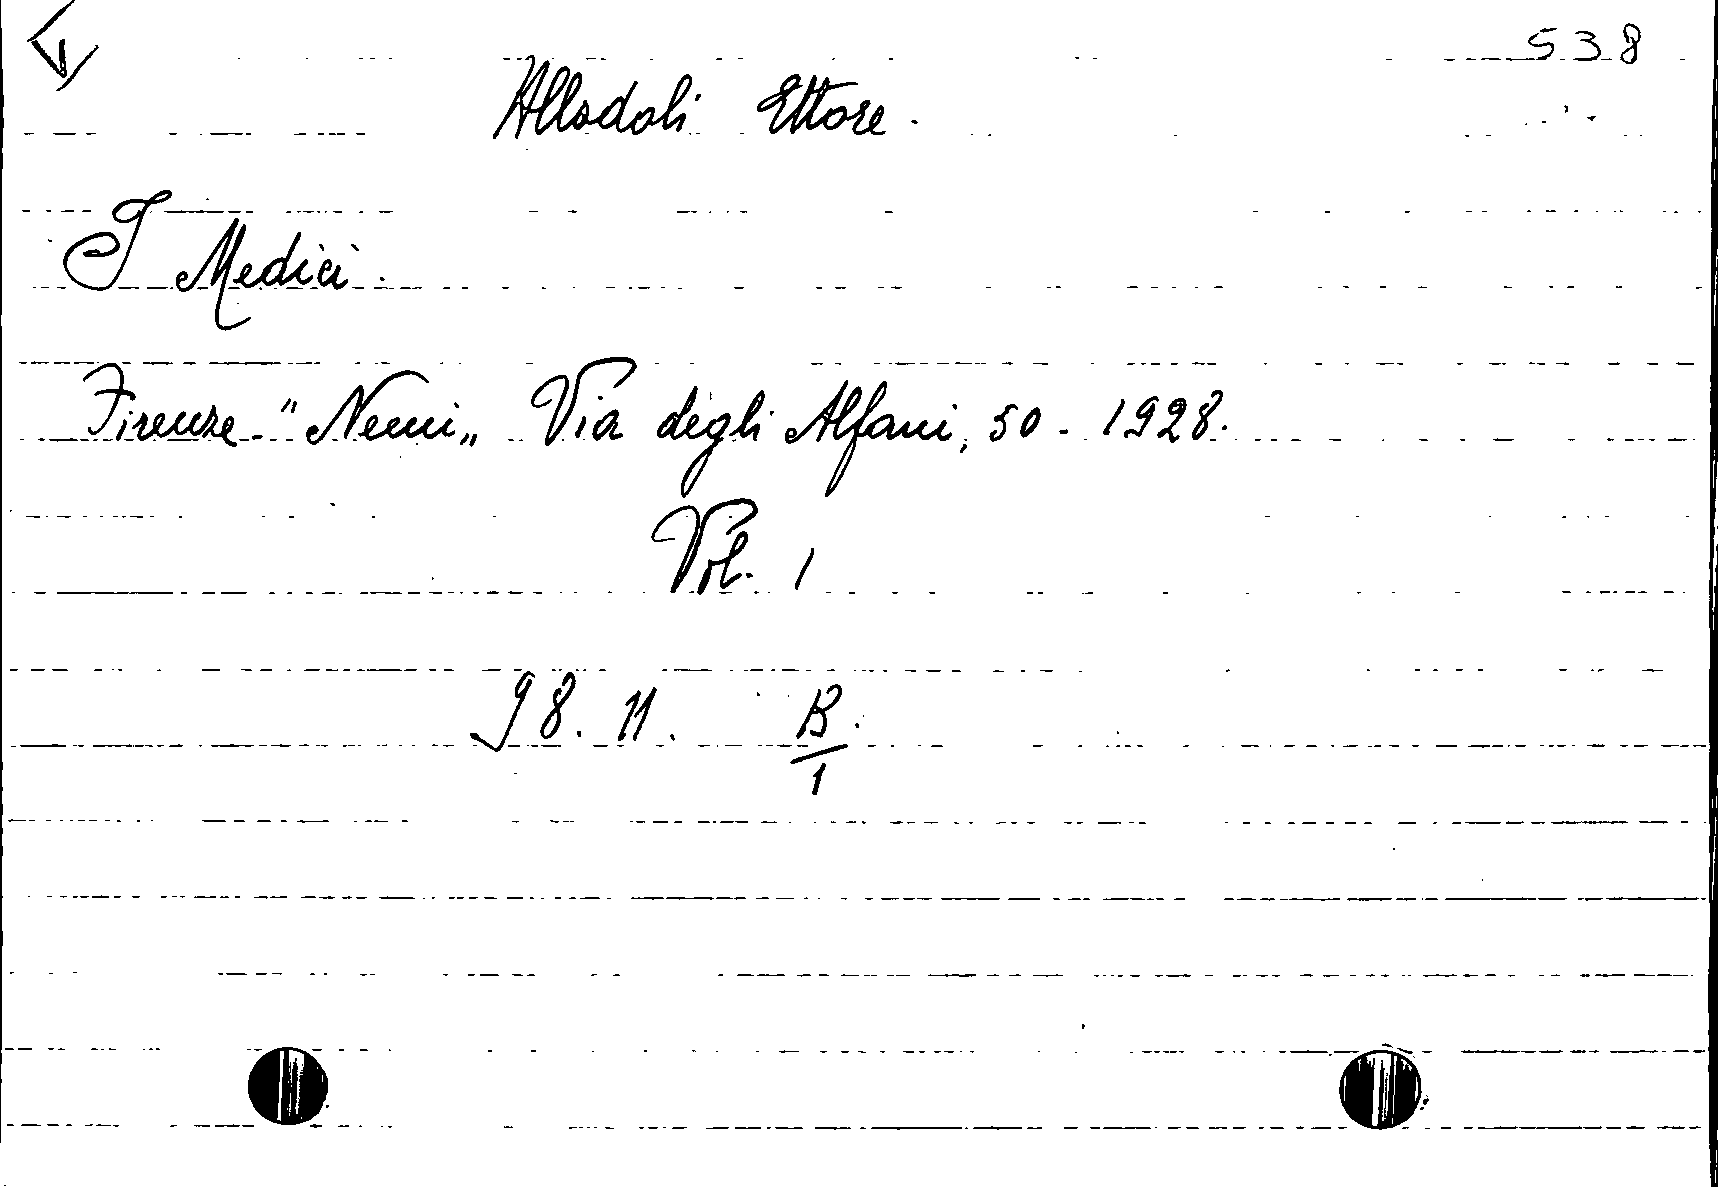 538
Allodoli Ettore.
I Medici.
Firenze - "Nemi„ Via degli Alfani, 50 - 1928.
Vol. 1
98. 11. B.
1